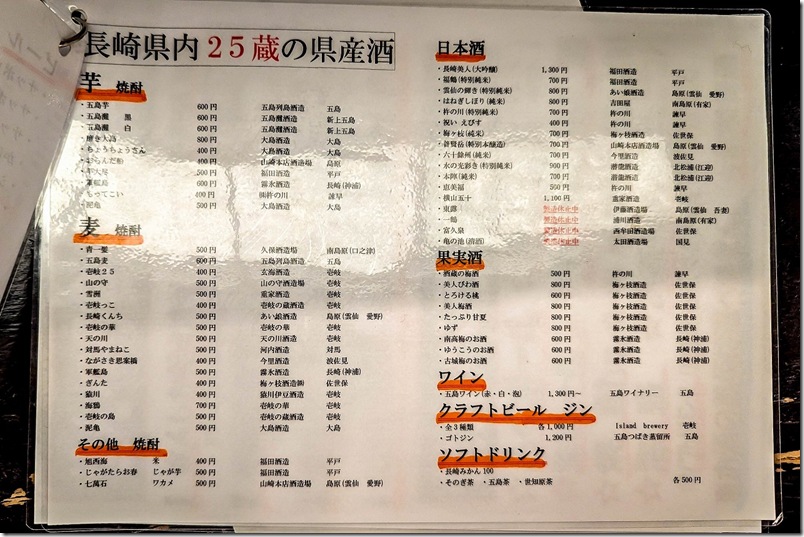 ビール
長崎県内25蔵の県産酒
芋 焼酎
・五島芋 600円 五島列島酒造 五島
・五島灘 黒 600円 五島灘酒造 新上五島
・五島灘 白 600円 五島灘酒造 新上五島
・磨き大島 800円 大島酒造 大島
・ちょうちょうさん 400円 大島酒造 大島
・おらんだ船 400円 山崎本店酒造場 島原
500円 福田酒造 平戸
・軍艦島 600円 霧氷酒造 長崎(神浦)
・もってこい 400円 ㈱杵の川 諫早
・泥亀 500円 大島酒造 大島
麦 焼酎
・青一髪 500円 久保酒造場 南島原(口之津)
・五島麦 600円 五島列島酒造 五島
・壱岐25 400円 玄海酒造 壱岐
・山の守 500円 山の守酒造場 壱岐
・雪洲 500円 重家酒造 壱岐
・壱岐っこ 400円 壱岐の蔵酒造 壱岐
・長崎くんち 500円 あい娘酒造 島原(雲仙 愛野)
・壱岐の華 500円 壱岐の華 壱岐
・天の川 500円 天の川酒造 壱岐
・対馬やまねこ 500円 河内酒造 対馬
・ながさき思案橋 400円 今里酒造 波佐見
・軍艦島 500円 霧氷酒造 長崎(神浦)
・ぎんた 400円 梅ヶ枝酒造㈱ 佐世保
・猿川 400円 猿川伊豆酒造 壱岐
・海鴉 700円 壱岐の華 壱岐
・壱岐の島 500円 壱岐の蔵酒造 壱岐
・泥亀 500円 大島酒造 大島
その他 焼酎
・旭西海 米 400円 福田酒造 平戸
・じゃがたらお春 じゃが芋 500円 福田酒造 平戸
・七萬石 ワカメ 500円 山崎本店酒造場 島原(雲仙 愛野)
日本酒
・長崎美人(大吟醸) 1,300円 福田酒造 平戸
・福鶴(特別純米) 700円 福田酒造 平戸
・雲仙の輝き(特別純米) 800円 あい娘酒造 島原(雲仙 愛野)
・はねぎしぼり(純米) 800円 吉田屋 南島原(有家)
・杵の川(特別純米) 700円 杵の川 諫早
・祝い えびす 400円 杵の川 諫早
・梅ヶ枝(純米) 700円 梅ヶ枝酒造 佐世保
・普賢岳(特別本醸造) 700円 山崎本店酒造場 島原(雲仙 愛野)
・六十餘州(純米) 700円 今里酒造 波佐見
・水の光彩き(特別純米) 900円 潜龍酒造 北松浦(江迎)
・本陣(純米) 700円 潜龍酒造 北松浦(江迎)
・恵美福 500円 杵の川 諫早
・横山五十 1,100円 重家酒造 壱岐
・東露 製造休止中 伊藤酒造場 島原(雲仙 吾妻)
・一鶴 製造休止中 盛川酒造 南島原(有家)
・富久泉 製造休止中 西牟田酒造場 佐世保
・亀の池(清酒) 製造休止中 太田酒造場 国見
果実酒
・酒蔵の梅酒 500円 杵の川 諫早
・美人びわ酒 800円 梅ヶ枝酒造 佐世保
・とろける桃 600円 梅ヶ枝酒造 佐世保
・美人梅酒 800円 梅ヶ枝酒造 佐世保
・たっぷり甘夏 800円 梅ヶ枝酒造 佐世保
・ゆず 800円 梅ヶ枝酒造 佐世保
・南高梅のお酒 500円 霧氷酒造 長崎(神浦)
・ゆうこうのお酒 500円 霧氷酒造 長崎(神浦)
・古城梅のお酒 500円 霧氷酒造 長崎(神浦)
ワイン
・五島ワイン(赤・白・泡) 1,300円～ 五島ワイナリー 五島
クラフトビール ジン
・全3種類 各1,000円 Island brewery 壱岐
・ゴトジン 1,200円 五島つばき蒸留所 五島
ソフトドリンク
・長崎みかん100
・そのぎ茶 ・五島茶 ・世知原茶 各500円